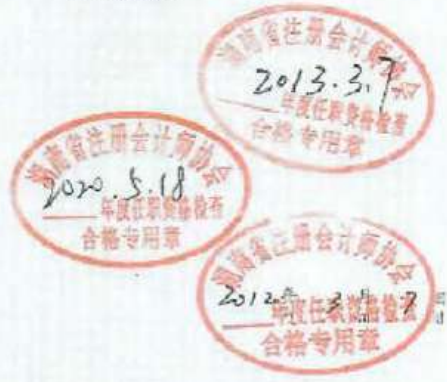 湖南省注册会计师协会
2013.3.7
年度任职资格检查
合格专用章
湖南省注册会计师协会
2020.5.18
年度任职资格检查
合格专用章
湖南省注册会计师协会
2012年 3月 7
年度任职资格检查
合格专用章